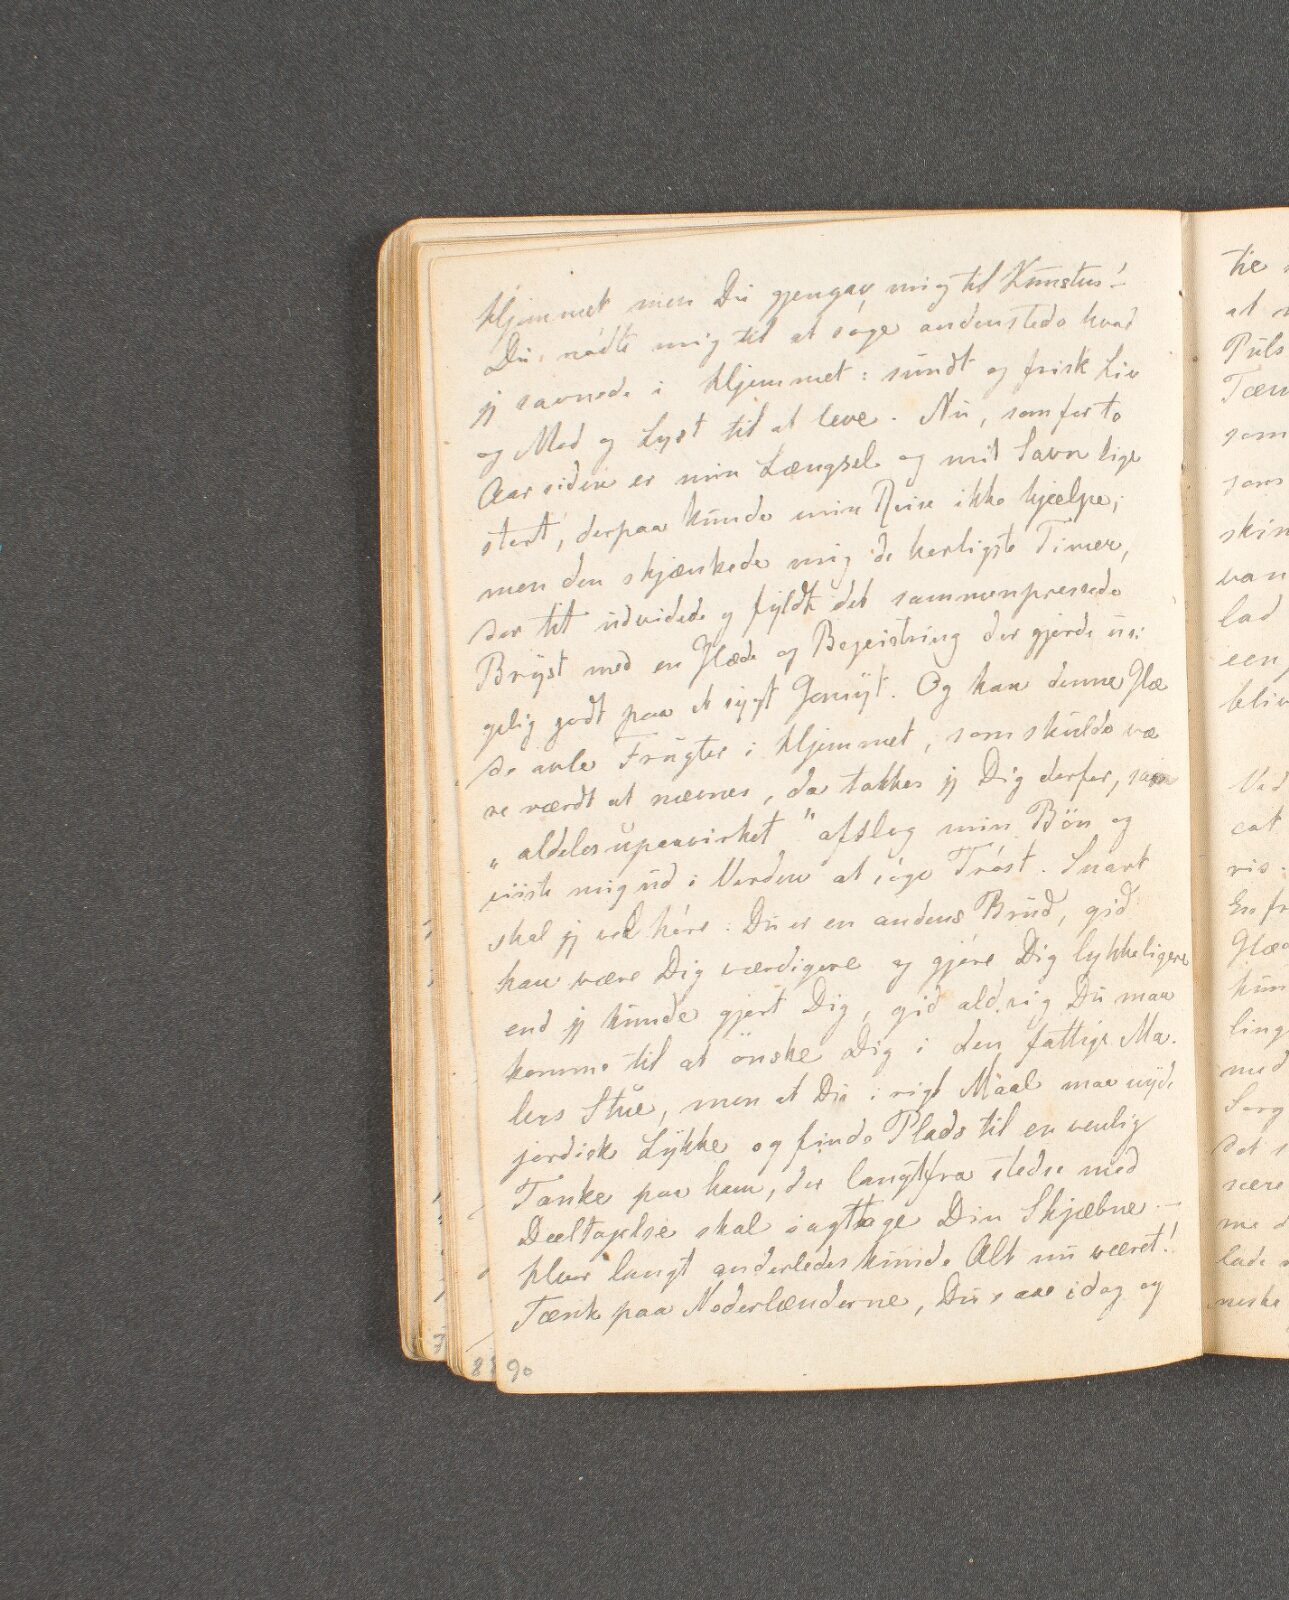 Hjemmet men Du gjengav mig til Kunsten! –
Du nödte mig til at söge andensteds hvad
jeg savnede i Hjemmet: sundt og frisk Liv
og Mod og Lyst til at leve. Nu, som for to
Aar siden er min Længsel og mit Savn lige
stort, derpaa kunde min Reise ikke hjælpe;
men den skjænkede mig de herligste Timer,
der tit udvidede og fyldte det sammenpressede
Bryst med en Glæde og Begeistring der gjorde usi:
gelig godt paa et sygt Gemyt. Og kan denne Glæ
de avle Frugter i Hjemmet, som skulde væ
re værdt at nævnes, da takker jeg Dig derfor, som
„aldeles upaavirket" afslog min Bön og
viiste mig ud i Verden at söge Tröst. Snart
skal jeg vel höre: Du er en andens Brud, gid
han være Dig værdigere og gjöre Dig lykkeligere
end jeg kunde gjort Dig, gid aldrig Du maa
komme til at önske Dig i den fattige Ma-
lers Stue, men at Du i rigt Maal maa nyde
jordisk Lykke og finde Plads til en venlig
Tanke paa ham, der langtfra stedse med
Deeltagelse skal iagttage Din Skjæbne. –
Hvor langt anderledes kunde Alt nu været!
Tænk paa Nederlænderne, Du saae idag og
90
tie
at
Puls
som
som
lad
een
Ved
ris:
ling
med
Sorg
det
være